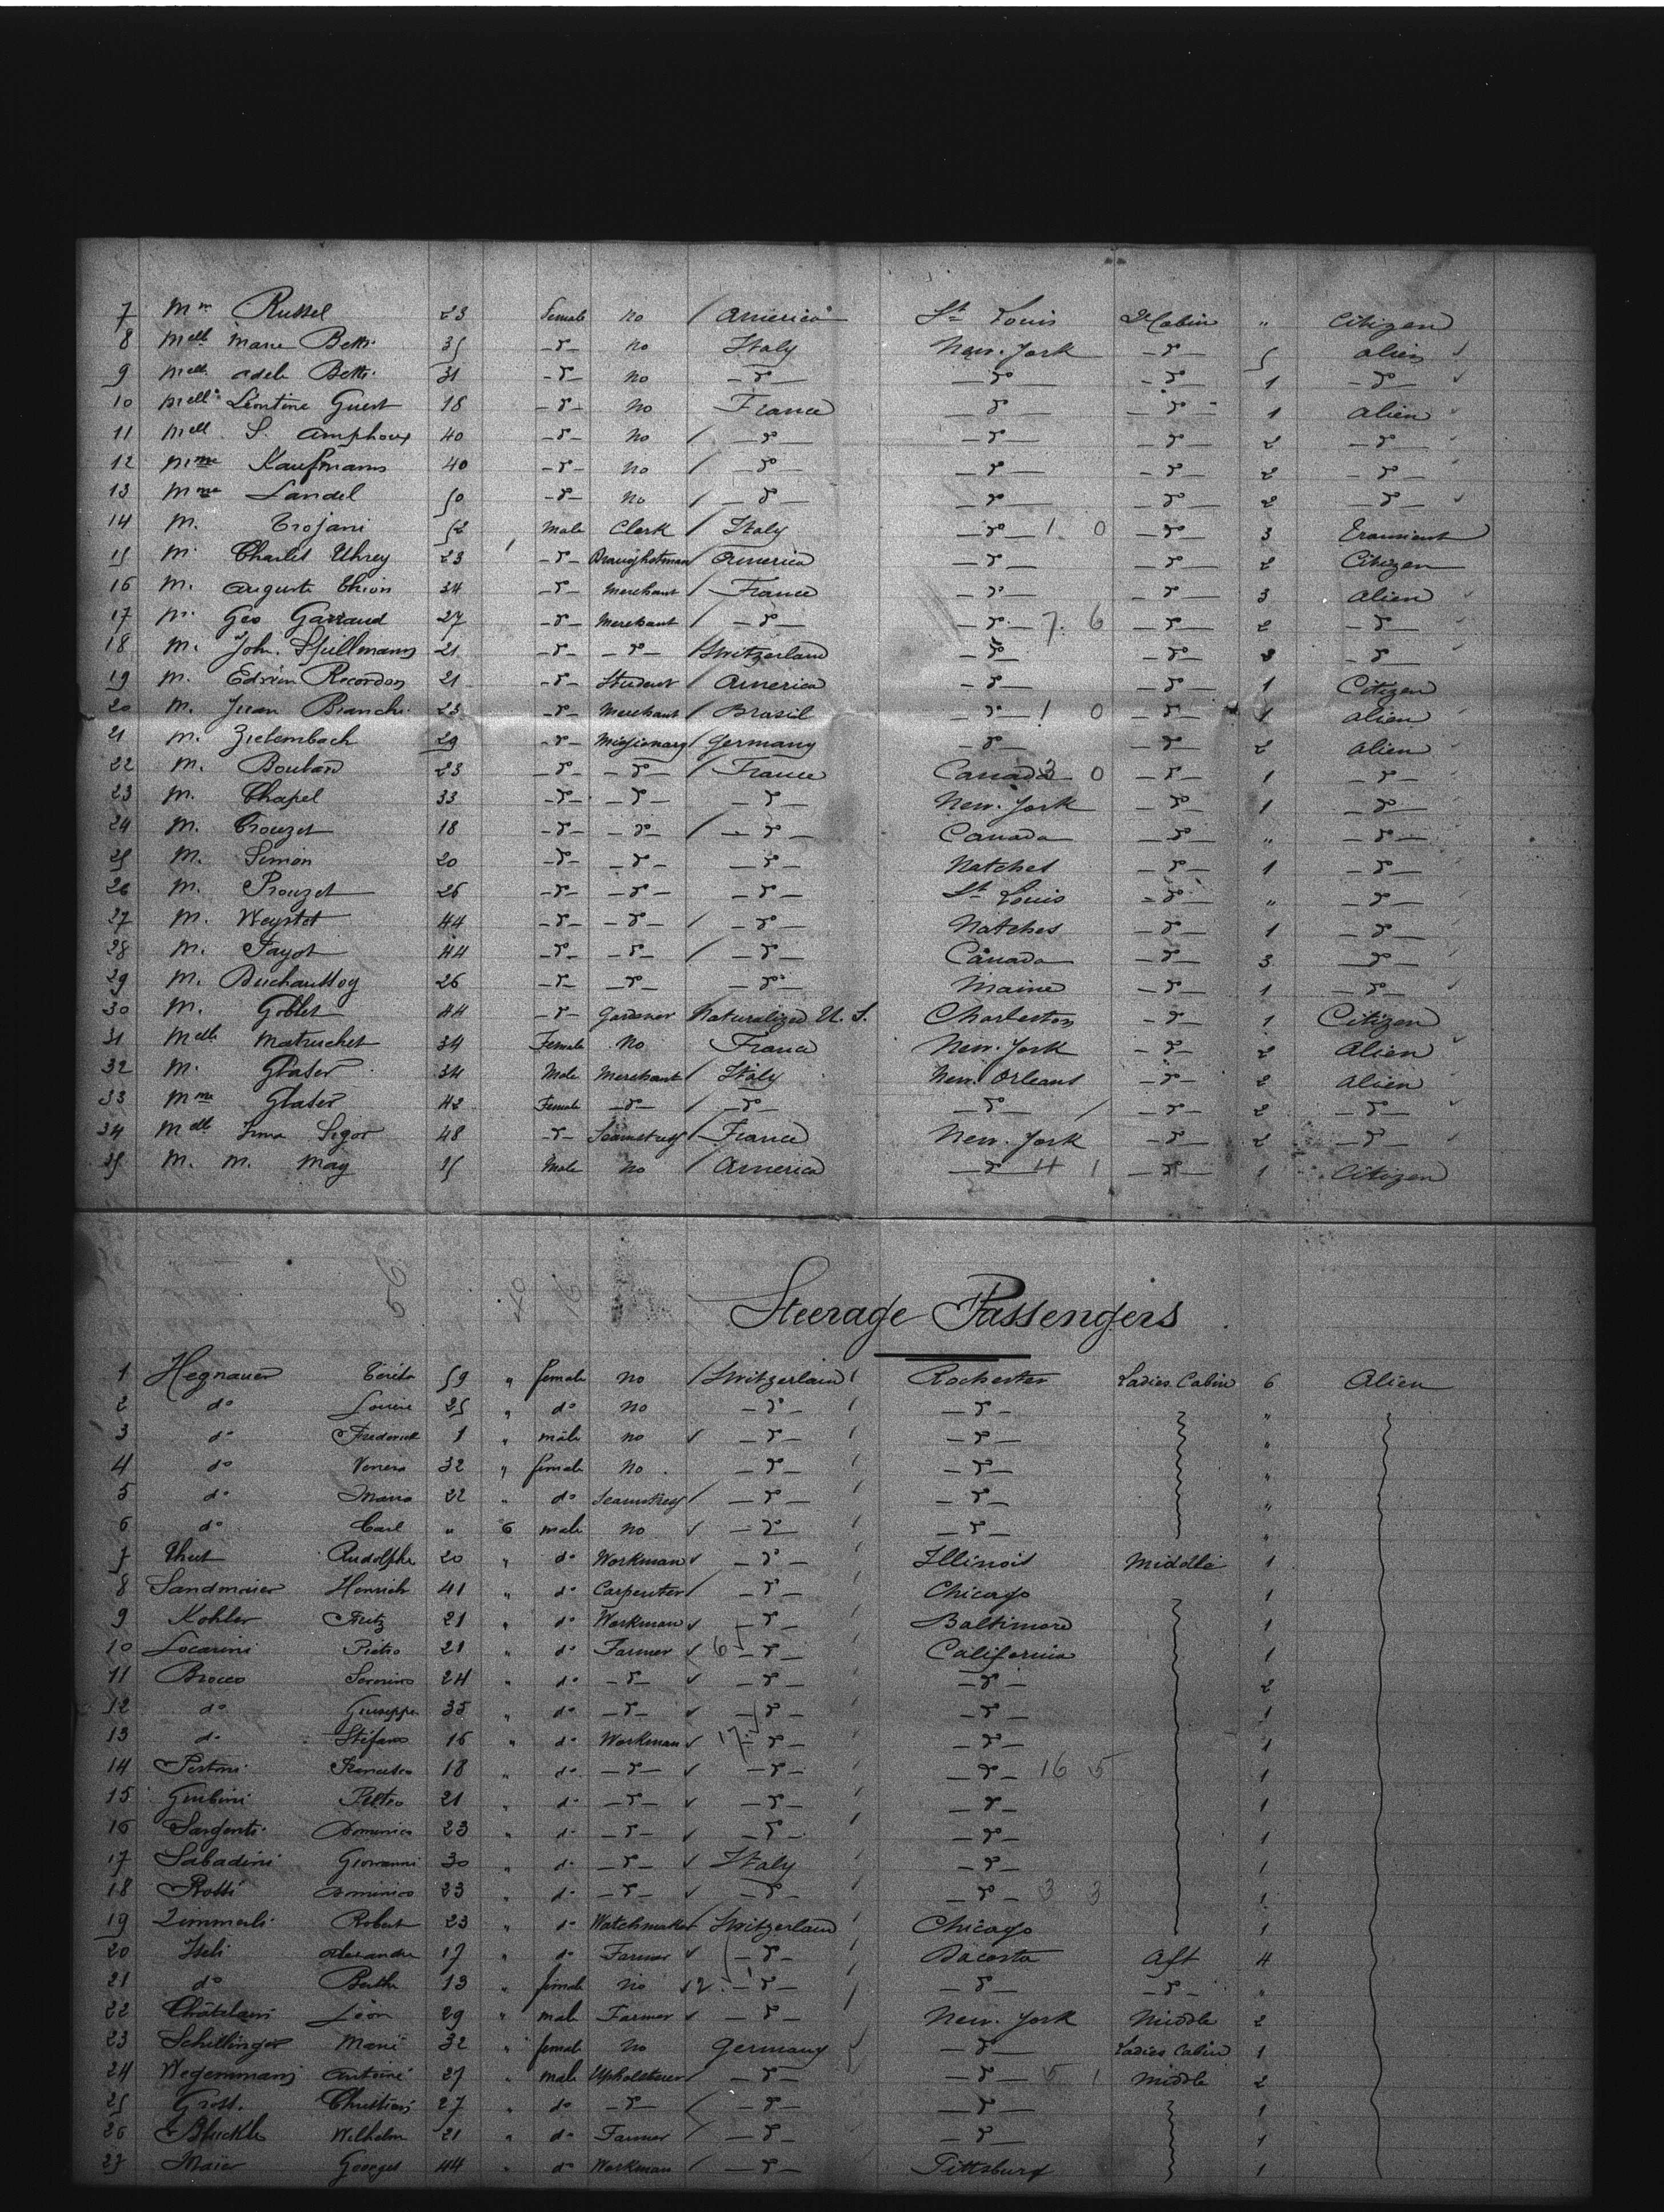 7 Mme Russel 23 Female no / America St Louis 2d Cabin " Citizen
8 Melle Marie Betti 35 -d- no Italy New-York -d- 5 alien
9 Melle Adele Betti 31 -d- no -d- -d- -d- 1 -d-
10 Melle Léontine Guest 18 -d- no France -d- -d- 1 alien
11 Melle S. Amphoux 40 -d- no / -d- -d- -d- 2 -d-
12 Mme Kaufmann 40 -d- no / -d- -d- -d- 2 -d-
13 Mme Landel 50 -d- no / -d- -d- -d- 2 -d-
14 M. Trojani 52 Male Clerk / Italy -d- 1 0 -d- 3 Transient
15 M. Charles Uhrey 23 -d- Draughotman / America -d- -d- 2 Citizen
16 M. Auguste Thion 34 -d- Merchant / France -d- -d- 3 alien
17 M. Geo Garraud 27 -d- Merchant / -d- -d- 7. 6 -d- 2 -d-
18 M. John Spillmann 21 -d- -d- / Switzerland -d- -d- -d-
19 M. Edwin Recordon 21 -d- Student / America -d- -d- 1 Citizen
20 M. Juan Bianchi 23 -d- Merchant / Brasil -d- 1 0 -d- 1 alien
21 M. Zielembach 29 -d- Missionary / Germany -d- -d- 2 alien
22 M. Bouland 23 -d- -d- / France Canada 3 0 -d- 1 -d-
23 M. Chapel 33 -d- -d- -d- New-York -d- 1 -d-
24 M. Crouzet 18 -d- -d- / -d- Canada -d- " -d-
25 M. Simon 20 -d- -d- -d- Natches -d- 1 -d-
26 M. Prouzet 26 -d- -d- -d- St Louis -d- " -d-
27 M. Weystet 44 -d- -d- / -d- Natches -d- 1 -d-
28 M. Fayot 44 -d- -d- / -d- Canada -d- 3 -d-
29 M. Duchaussoy 26 -d- -d- -d- Maine -d- 1 -d-
30 M. Goblet 44 -d- Gardner Naturalized U. S. Charleston -d- 1 Citizen
31 Melle Matruchet 34 Female No France New-York -d- 2 Alien
32 M. Glaser 34 Male Merchant / Italy New Orleans -d- 2 alien
33 Mme Glaser 42 Female -d- / -d- -d- / -d- 2 -d-
34 Melle Irma Sigor 48 -d- Seamstress / France New-York -d- 2 -d-
35 M. M. May 35 Male no / America -d- 4 1 -d- 1 Citizen
Steerage Passengers
1 Hegnauer 59 " female no / Switzerland Rochester Ladies Cabin 6 Alien
2 do Louise 25 " do no -d- -d- "
3 do Frederick 1 " male no -d- -d- "
4 do Verena 32 " female No -d- -d- "
5 do Maria 22 " do Seamstress / -d- -d- "
6 do Carl " 6 male no -d- -d- "
7 Thut Rudolphe 20 " do Workman -d- Illinois Middle 1
8 Sandmeier Henrich 41 " do Carpenter / -d- Chicago 1
9 Kohler Fritz 21 " do Workman -d- Baltimore 1
10 Locarini Pietro 21 " do Farmer 6 -d- California 1
11 Brocco 24 " do -d- -d- -d- 2
12 do Giuseppe 35 " do -d- -d- -d- 1
13 do Stefano 16 " do Workman 17 -d- -d- 1
14 Pertoni Francesco 18 " do -d- -d- -d- 16 5 1
15 Giubini Pietro 21 " do -d- -d- -d- 1
16 Sargenti Dominico 23 " do -d- -d- -d- 1
17 Sabadini Giovanni 30 " do -d- Italy -d- 1
18 Rossi Dominico 23 " do -d- -d- -d- 3 3 1
19 Zimmerli Robert 23 " do Watchmaker Switzerland Chicago 1
20 Iseli Alexandre 17 " do Farmer -d- Dacosta Aft 4
21 do Berthe 13 " female no 12 -d- -d- -d- "
22 Châtelain Léon 29 " male Farmer -d- New-York Middle 2
23 Schillinger Marie 32 " female No Germany -d- Ladies Cabin 1
24 Wegenmann Antoine 27 " male Upholsterer -d- -d- 5 1 middle 2
25 Gross Christian 27 " do -d- / -d- -d- 1
26 Bluckle Wilhelm 21 " do Farmer / -d- -d- 1
27 Maier Georges 44 " do Workman / -d- Pittsburg 1